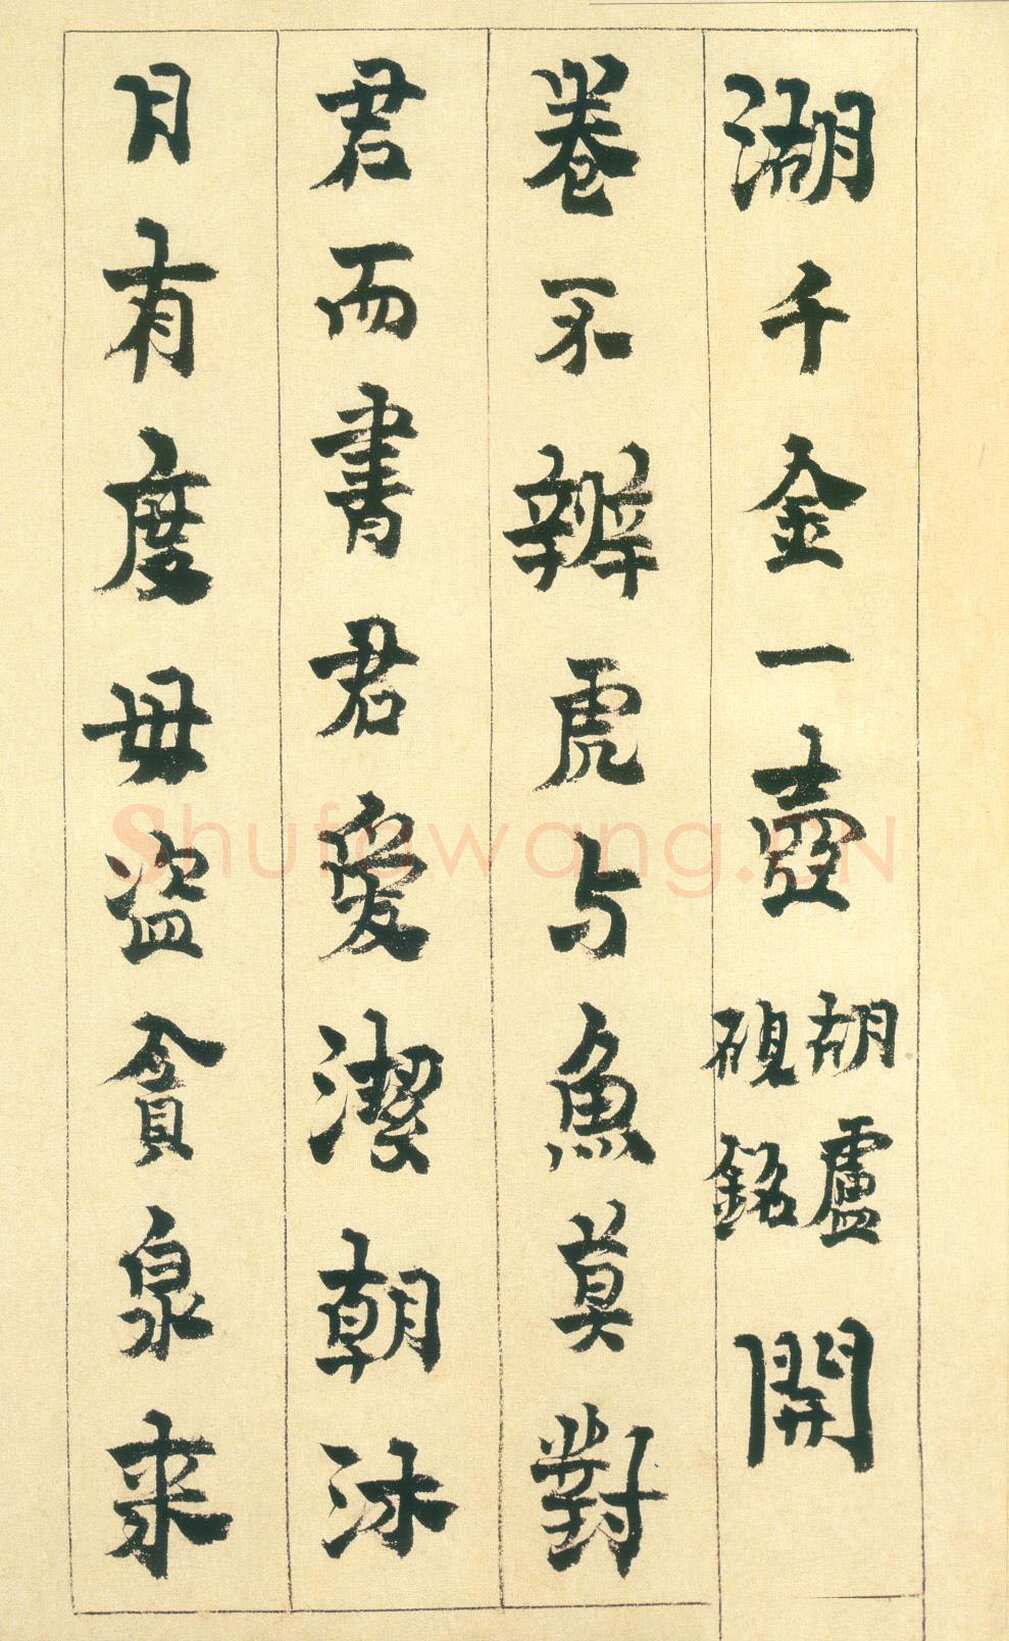 湖千金一壺
胡盧
硯銘
開
卷不辨虎与魚莫對
君而書君愛潔朝沐
月有度毋盜貪泉來
Shufawang.CN